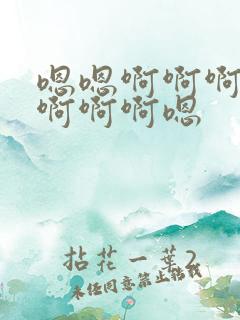 嗯嗯啊啊啊
啊啊啊嗯
拈花一葉2
未经同意禁止转载